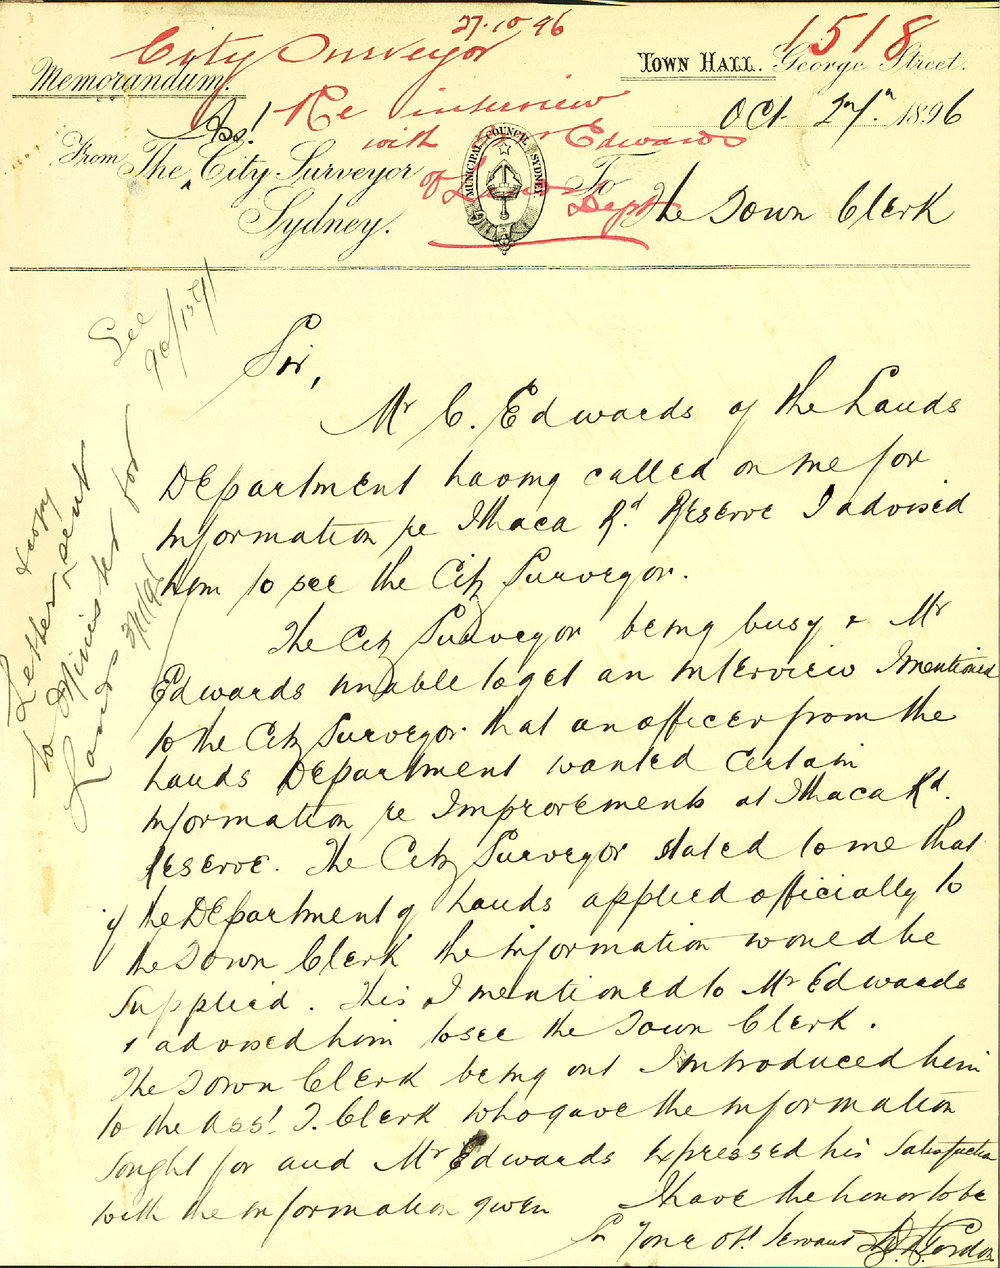 27.10.96
City Surveyor
1518
Memorandum.
TOWN HALL. George Street.
Re interview
with Mr Edwards
of Lands
Dept
Oct. 27th 1896
From Asst The City Surveyor
Sydney.
MUNICIPAL COUNCIL SYDNEY
To The Town Clerk
See
96/1591
Letter & copy
to & sent
Minister for
Lands
Sir,
Mr C. Edwards of the Lands
Department having called on me for
information re Ithaca Rd. Reserve I advised
him to see the City Surveyor.
The City Surveyor being busy & Mr
Edwards unable to get an interview I mentioned
to the City Surveyor that an officer from the
Lands Department wanted certain
information re Improvements at Ithaca Rd.
Reserve. The City Surveyor stated to me that
if the Department of Lands applied officially to
the Town Clerk the information would be
supplied. This I mentioned to Mr Edwards
& advised him to see the Town Clerk.
The Town Clerk being out I introduced him
to the Asst T. Clerk who gave the information
sought for and Mr Edwards expressed his satisfaction
with the information given I have the honor to be
Sir Your obt. Servant Gordon